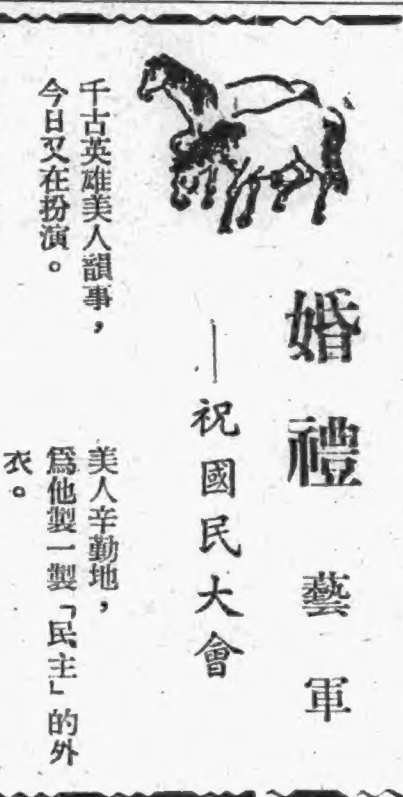 婚禮 藝軍
——祝國民大會
千古英雄美人韻事，
今日又在扮演。
美人辛勤地，
爲他製一製「民主」的外
衣。